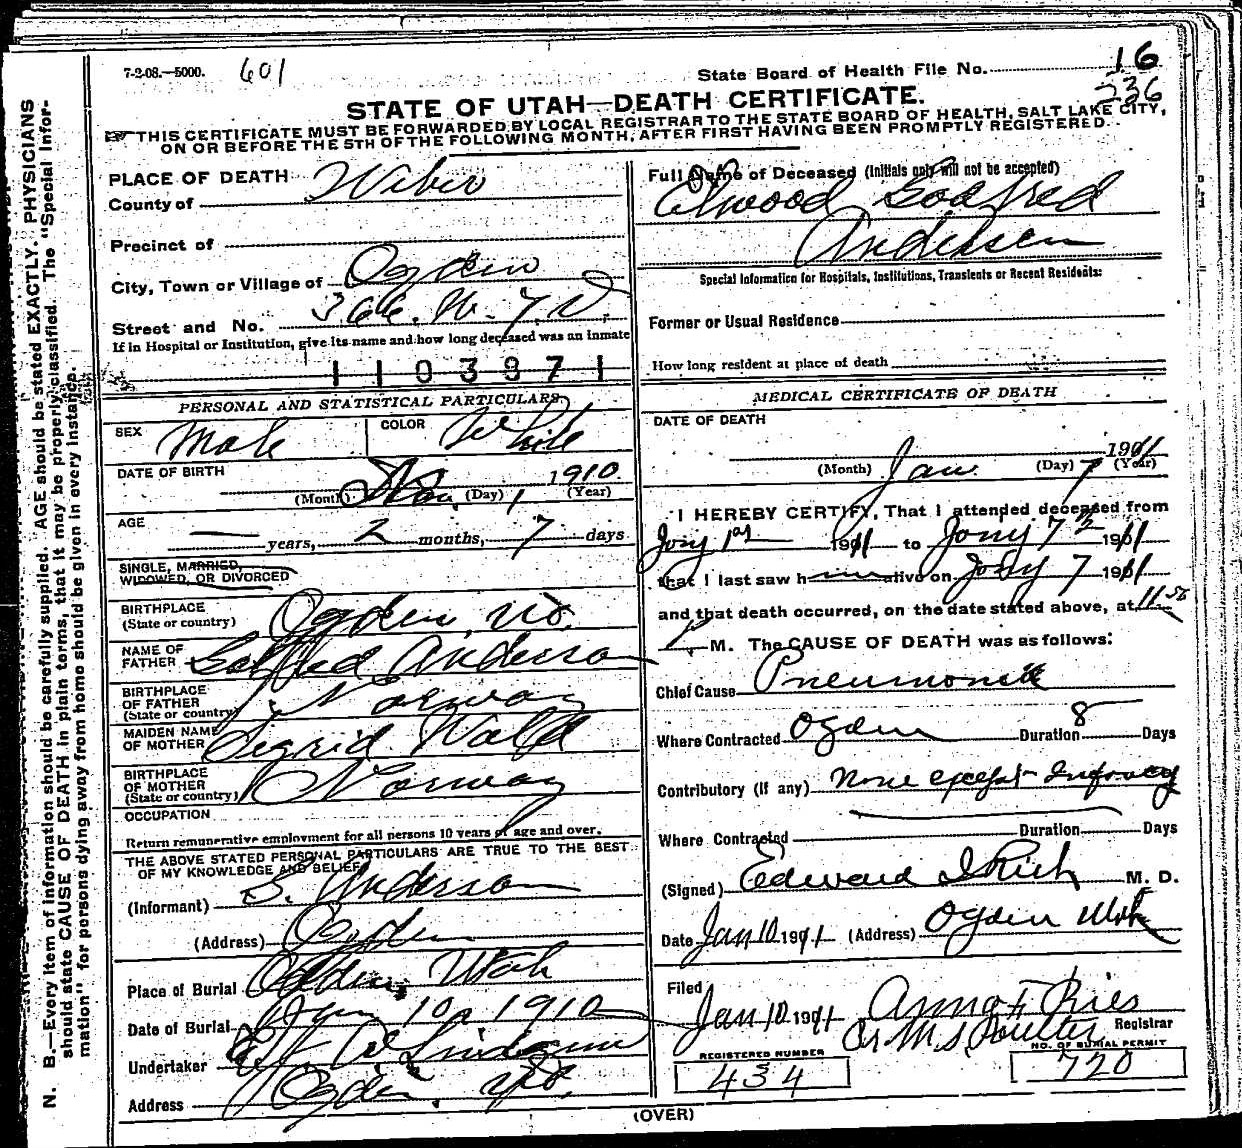 7-2-08.—5000. 601
State Board of Health File No. 16
236
STATE OF UTAH—DEATH CERTIFICATE.
THIS CERTIFICATE MUST BE FORWARDED BY LOCAL REGISTRAR TO THE STATE BOARD OF HEALTH, SALT LAKE CITY,
ON OR BEFORE THE 5TH OF THE FOLLOWING MONTH, AFTER FIRST HAVING BEEN PROMPTLY REGISTERED.
PLACE OF DEATH
County of Weber
Precinct of
City, Town or Village of Ogden
Street and No. 366. W.
If in Hospital or Institution, give its name and how long deceased was an inmate
1 1 0 3 8 7 1
PERSONAL AND STATISTICAL PARTICULARS
SEX Male COLOR White
DATE OF BIRTH
(Month) Nov. (Day) 1 1910. (Year)
AGE
— years, 2 months, 7 days
SINGLE, MARRIED,
WIDOWED, OR DIVORCED
BIRTHPLACE
(State or country) Ogden
NAME OF
FATHER Anderson
BIRTHPLACE
OF FATHER
(State or country) Norway
MAIDEN NAME
OF MOTHER Sigrid
BIRTHPLACE
OF MOTHER
(State or country) Norway
OCCUPATION
Return remunerative employment for all persons 10 years of age and over.
THE ABOVE STATED PERSONAL PARTICULARS ARE TRUE TO THE BEST
OF MY KNOWLEDGE AND BELIEF
(Informant) Anderson
(Address) Ogden
Place of Burial Ogden, Utah
Date of Burial Jan 10 1910
Undertaker
Address Ogden
Full Name of Deceased (Initials only will not be accepted)
Elwood Godfred
Andersen
Special Information for Hospitals, Institutions, Transients or Recent Residents:
Former or Usual Residence
How long resident at place of death
MEDICAL CERTIFICATE OF DEATH
DATE OF DEATH
(Month) Jan. (Day) 7 1911 (Year)
I HEREBY CERTIFY, That I attended deceased from
Jany 1st 1911 to Jany 7th 1911
that I last saw him alive on Jany 7 1911
and that death occurred, on the date stated above, at 11
P M. The CAUSE OF DEATH was as follows:
Chief Cause Pneumonia
Where Contracted Ogden Duration 8 Days
Contributory (If any) None except Infancy
Where Contracted Duration Days
(Signed) Edward I Rich M. D.
Date Jan 10 1911 (Address) Ogden Utah
Filed
Jan 10 1911 Anna F Ries
Registrar
REGISTERED NUMBER
434
NO. OF BURIAL PERMIT
720
(OVER)
N. B.—Every item of information should be carefully supplied. AGE should be stated EXACTLY. PHYSICIANS
should state CAUSE OF DEATH in plain terms, that it may be properly classified. The "Special Infor-
mation" for persons dying away from home should be given in every instance.